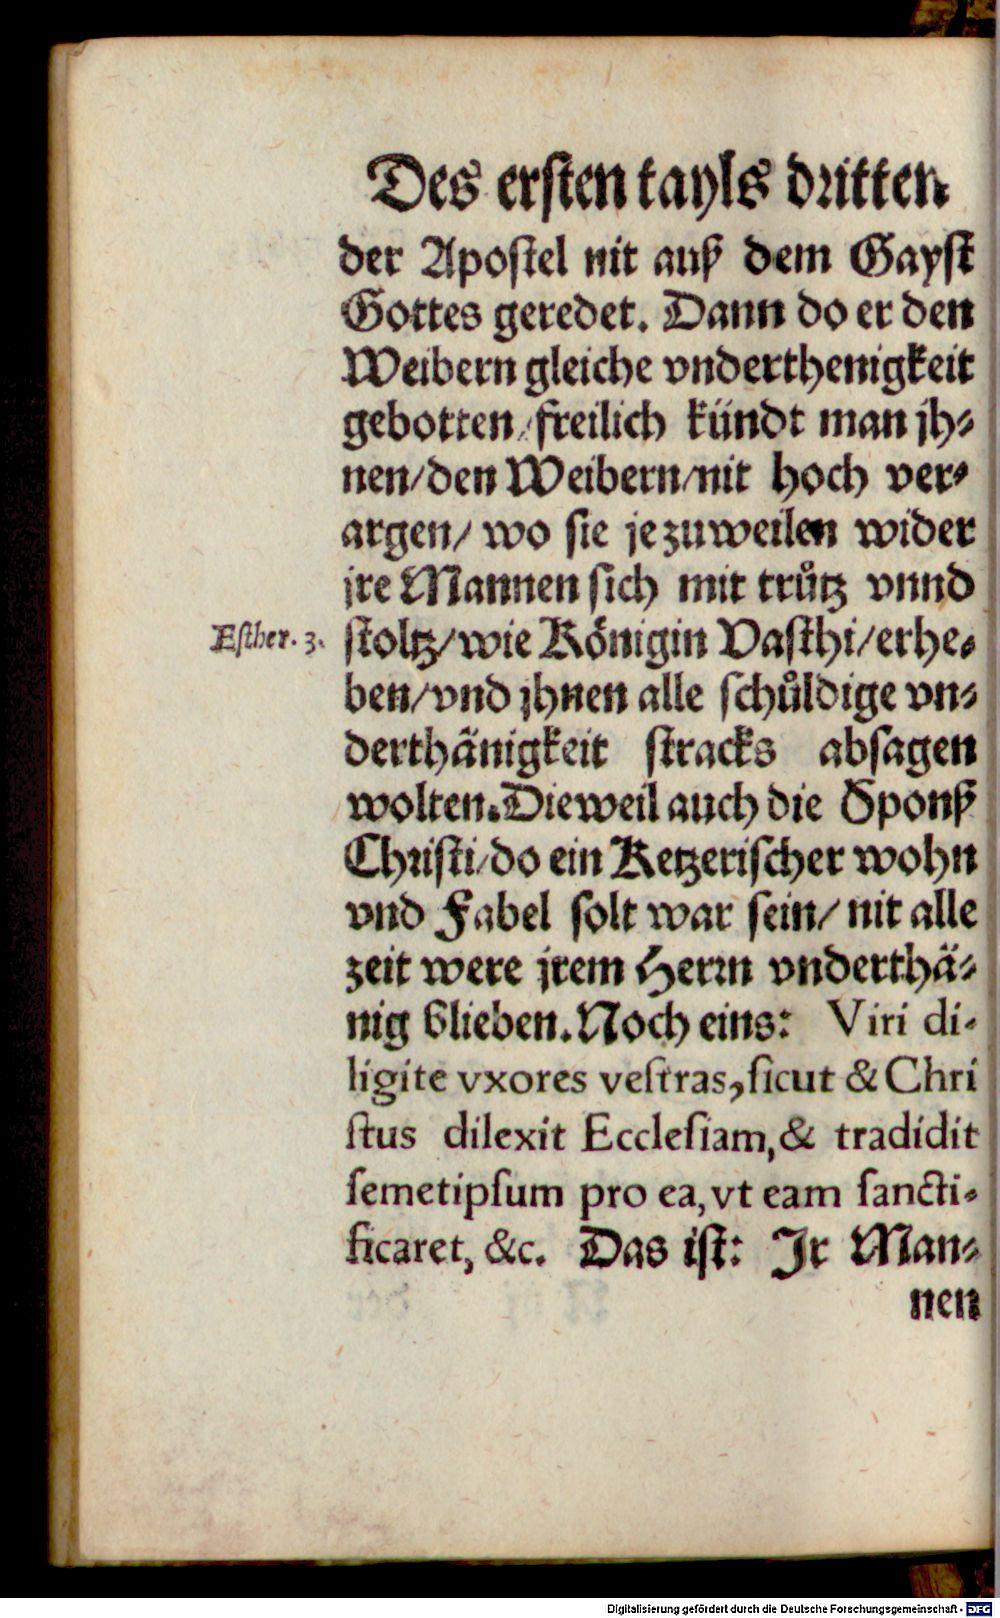 Des ersten tayls dritten
der Apostel nit auß dem Gayst
Gottes geredet. Dann do er den
Weibern gleiche vnderthenigkeit
gebotten/ freilich kündt man jh-
nen/ den Weibern/ nit hoch ver-
argen/ wo sie jezuweilen wider
jre Mannen sich mit trůtz vnnd
Esther. 3.
stoltz/ wie Königin Vasthi/ erhe-
ben/ vnd jhnen alle schůldige vn-
derthänigkeit stracks absagen
wolten. Dieweil auch die Sponß
Christi/ do ein Ketzerischer wohn
vnd Fabel solt war sein/ nit alle
zeit were jrem Herrn vnderthä-
nig blieben. Noch eins: Viri di-
ligite vxores vestras, sicut & Chri
stus dilexit Ecclesiam, & tradidit
semetipsum pro ea, vt eam sancti-
ficaret, &c. Das ist: Jr Man-
nen
Digitalisierung gefördert durch die Deutsche Forschungsgemeinschaft - DFG